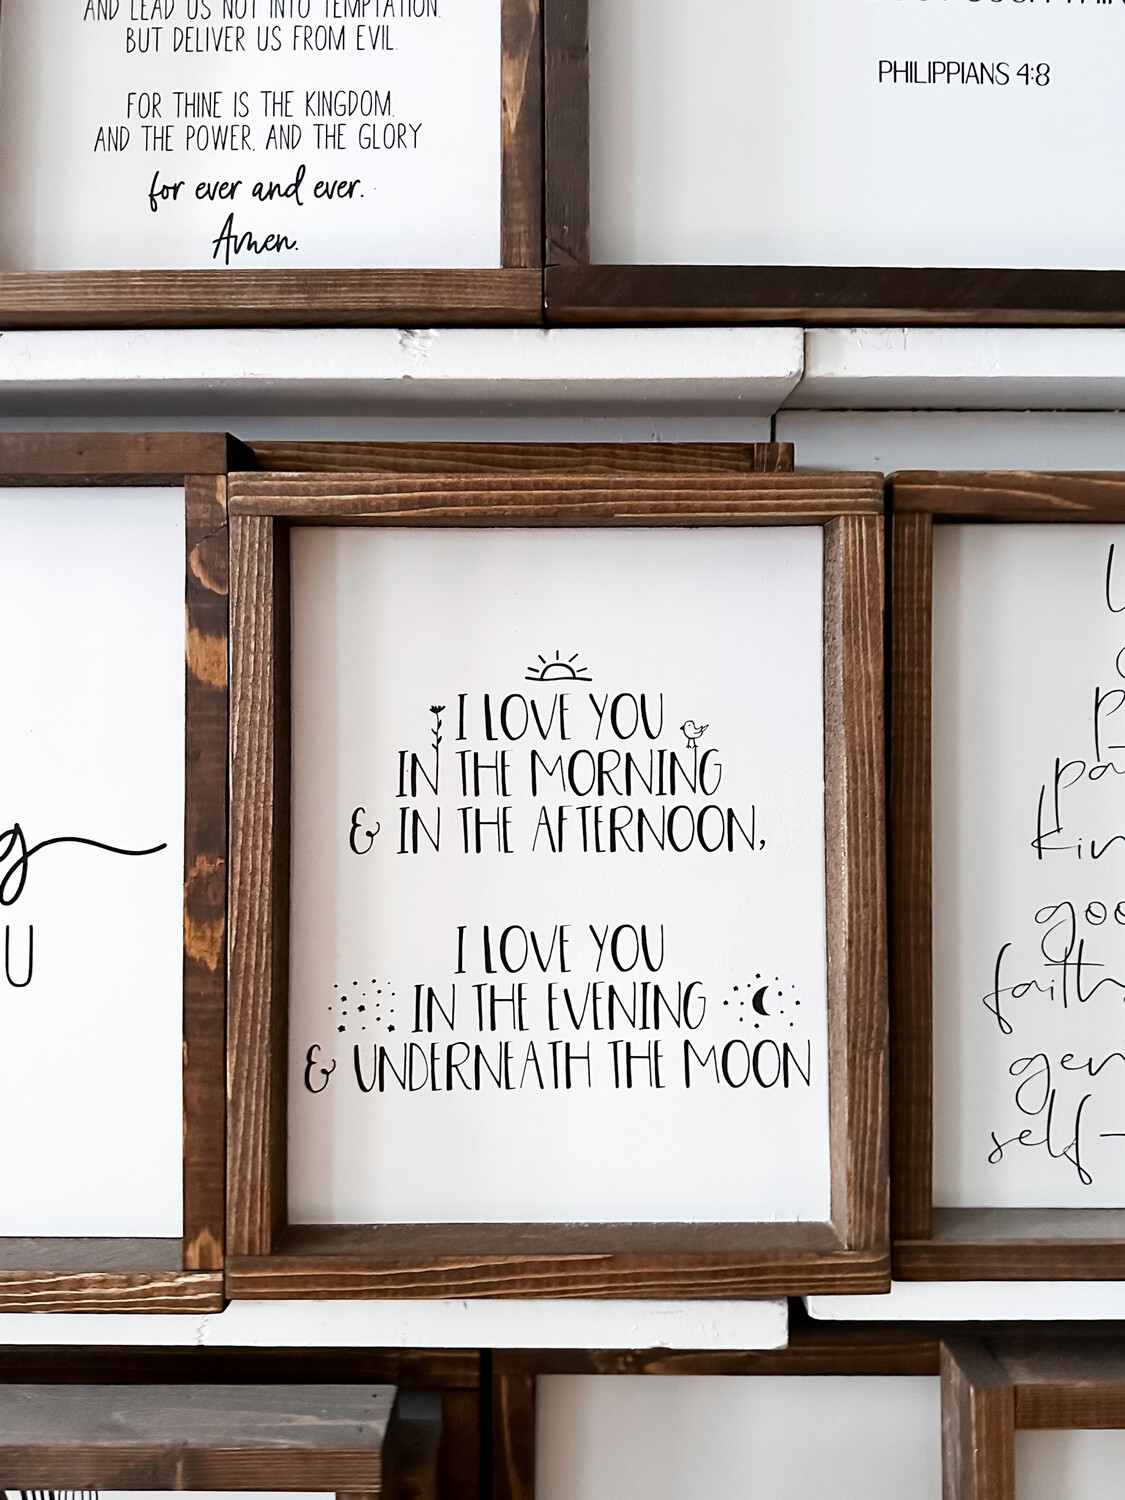 AND LEAD US NOT INTO TEMPTATION.
BUT DELIVER US FROM EVIL.
FOR THINE IS THE KINGDOM,
AND THE POWER, AND THE GLORY
for ever and ever.
Amen.
PHILIPPIANS 4:8
I LOVE YOU
IN THE MORNING
& IN THE AFTERNOON,
I LOVE YOU
IN THE EVENING
& UNDERNEATH THE MOON
faith
self-